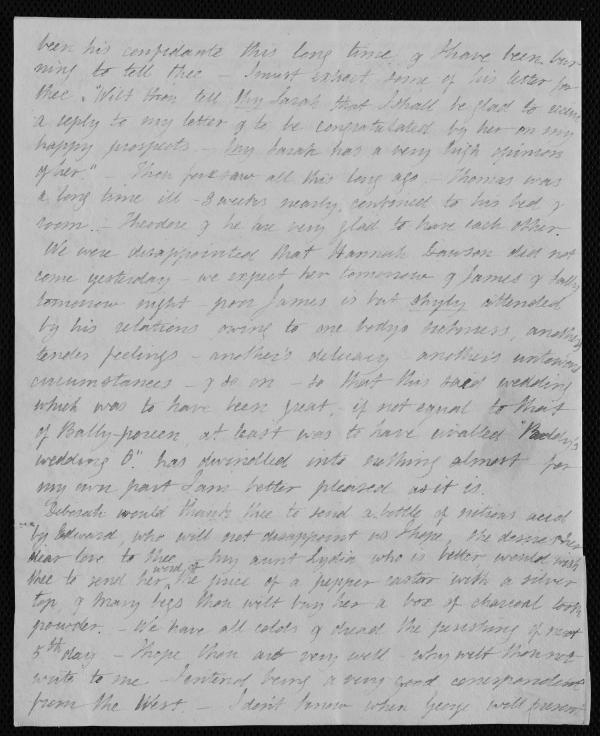 been his confidante this long time & I have been bur
ning to tell thee – I must extract some of his letter for
thee. "Wilt thou tell thy Sarah that I shall be glad to receive
a reply to my letter & to be congratulated by her on my
happy prospects – my Sarah has a very high opinion
of her." – Thou foresaw all this long ago – Thomas was
a long time ill – 3 weeks nearly confined to his bed &
room. – Theodore & he are very glad to have each other.
We were disappointed that Hannah Lawson did not
come yesterday – we expect her tomorrow & James & Sally
tomorrow night – poor James is but shyly attended
by his relations owing to one bodys sickness, another's
tender feelings – another's delicacy – another's untoward
circumstances – & so on – so that this said wedding
which was to have been great, – if not equal to that
of Bally-poreen, at least was to have rivalled "Paddy's
wedding O." has dwindled into nothing almost for
my own part I am better pleased as it is.
Deborah would thank thee to send a bottle of nitrous acid
by Edward, who will not disappoint us I hope, she desires her
dear love to thee – my aunt Lydia who is better would wish
thee to send her word of the price of a pepper castor with a silver
top, & Mary begs thou wilt buy her a box of charcoal tooth
powder. – We have all colds & dread the punishing of next
5th day – I hope thou art very well – why wilt thou not
write to me – I intend being a very good correspondent
from the West. – I don't know when George will present